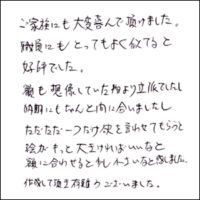 ご家族にも大変喜んで頂けました。
職員にもとってもよく似てると
好評でした。
額も想像していた物より立派でしたし
納期にもちゃんと間に合いましたし
ただただ一つだけ欲を言わせてもらうと
絵がもっと大きければいいなと
額に合わせると少し小さいなと感じました。
作成して頂き有難うございました。